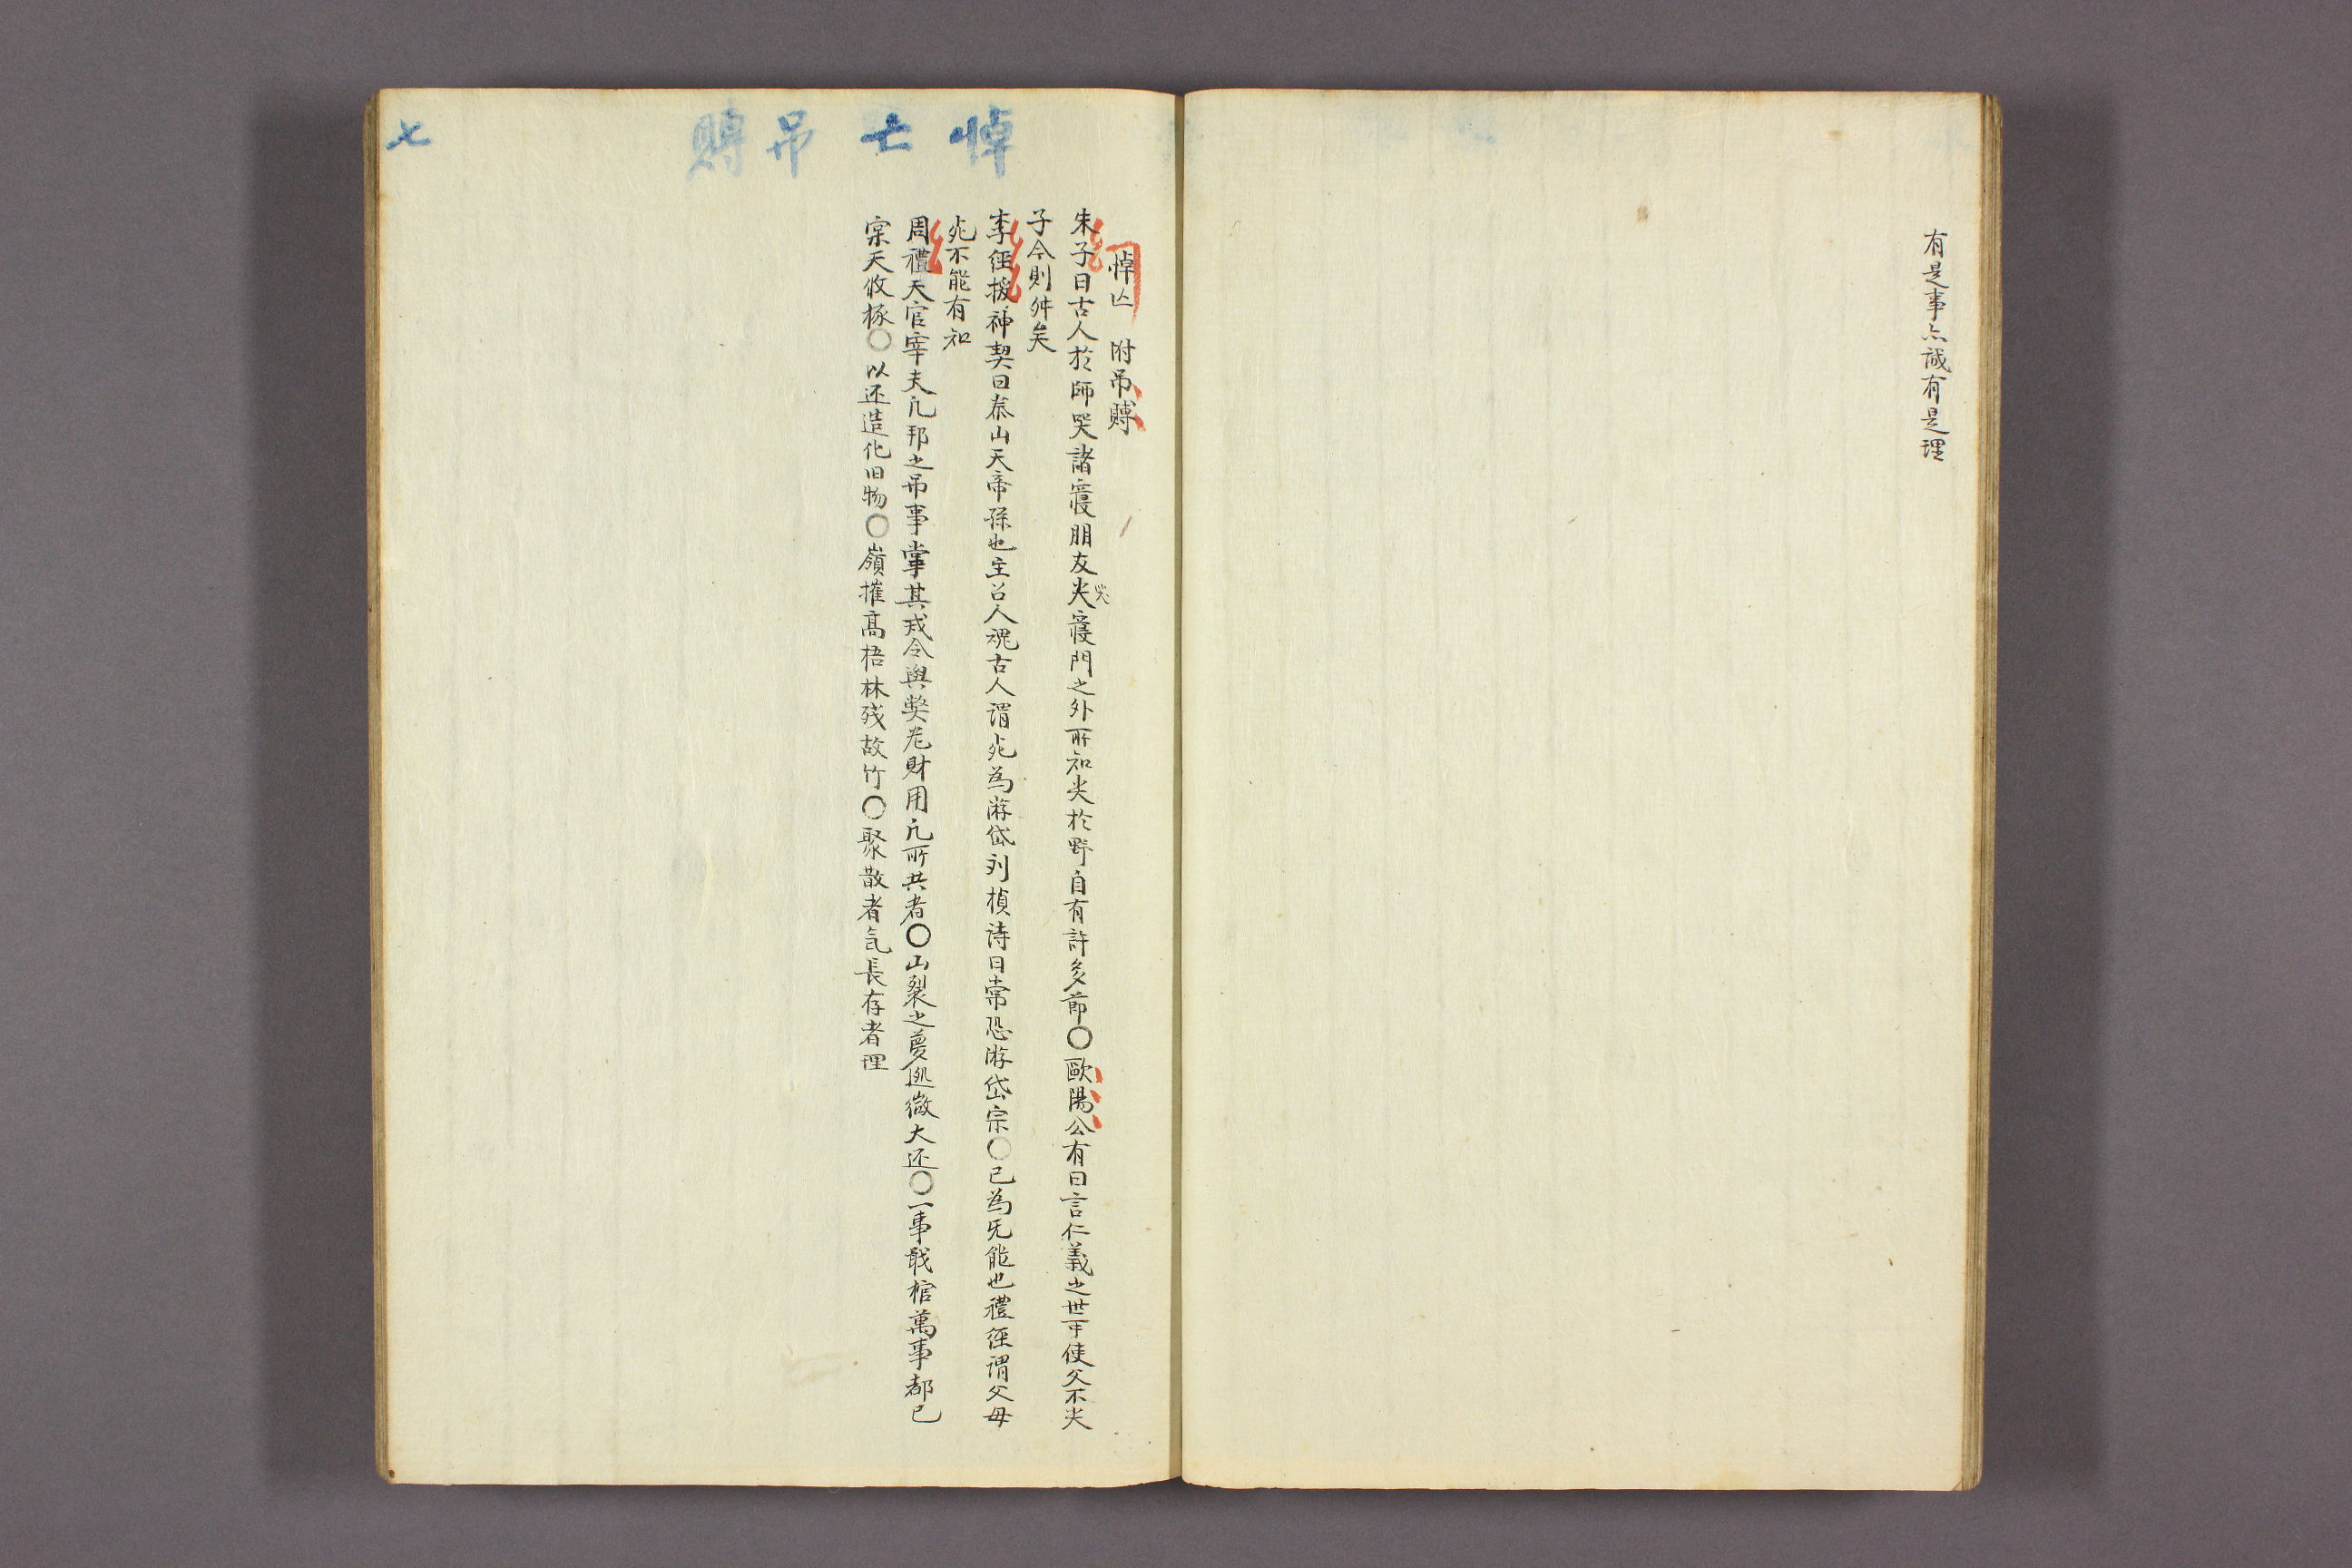 有是事亦誠有是理
悼亡吊賻
七
悼亡 附吊賻
朱子曰古人於師哭諸寢朋友哭寢門之外所知哭於野自有許多節〇歐陽公有曰言仁義之世可使父不哭
哭
子今則舛矣
李経援神契曰泰山天帝孫也主召人魂古人謂死為游岱刘楨詩曰常恐游岱宗〇已為旡能也禮経謂父母
死不能有知
周禮天官宰夫凢邦之吊事掌其戒令與獘器財用凢所共者〇山裂之夢迯微大还〇一事戢棺萬事都已
宲天收椓〇以还造化旧物〇嶺摧髙梧林残故竹〇聚散者気長存者理